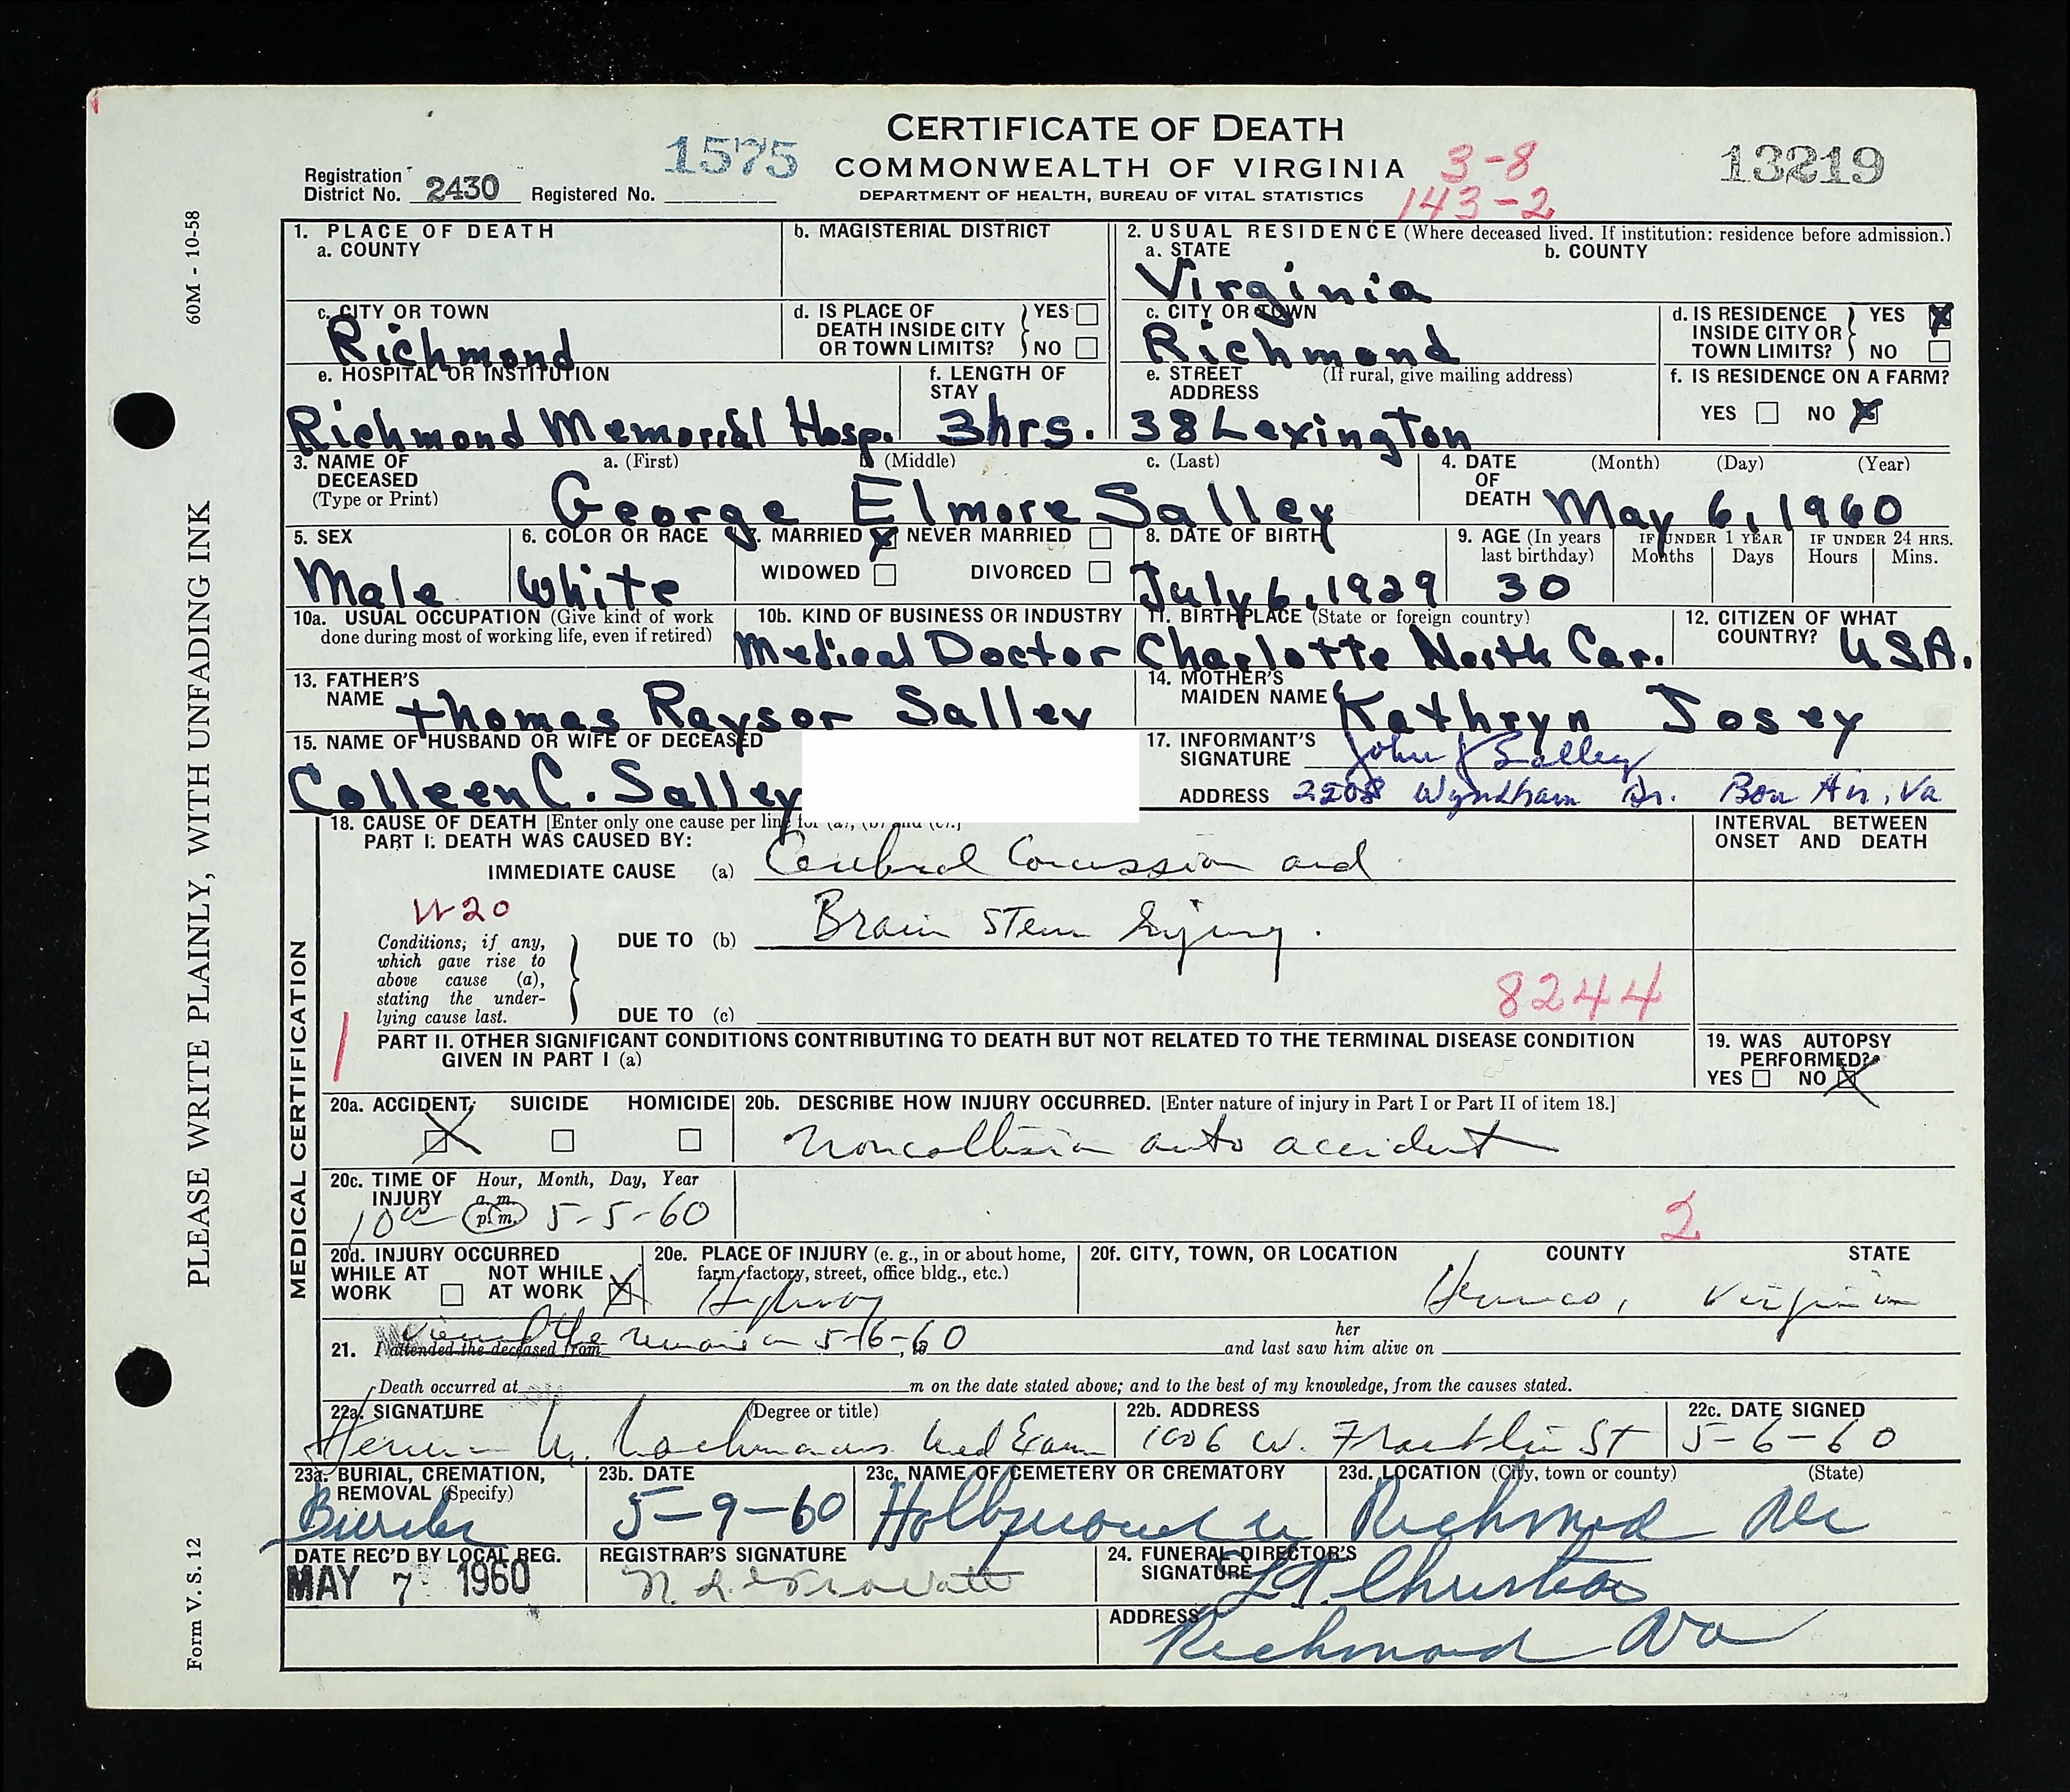 CERTIFICATE OF DEATH
COMMONWEALTH OF VIRGINIA
DEPARTMENT OF HEALTH, BUREAU OF VITAL STATISTICS
Registration District No. 2430 Registered No. 1575
3-8
143-2
13219
60M - 10-58
PLEASE WRITE PLAINLY, WITH UNFADING INK
Form V. S. 12
1. PLACE OF DEATH
a. COUNTY
b. MAGISTERIAL DISTRICT
2. USUAL RESIDENCE (Where deceased lived. If institution: residence before admission.)
a. STATE b. COUNTY
Virginia
c. CITY OR TOWN
Richmond
d. IS PLACE OF DEATH INSIDE CITY OR TOWN LIMITS? YES NO
c. CITY OR TOWN
Richmond
d. IS RESIDENCE INSIDE CITY OR TOWN LIMITS? YES X NO
e. HOSPITAL OR INSTITUTION
Richmond Memorial Hosp.
f. LENGTH OF STAY
3hrs.
e. STREET ADDRESS (If rural, give mailing address)
38 Lexington
f. IS RESIDENCE ON A FARM?
YES NO X
3. NAME OF DECEASED (Type or Print)
a. (First) b. (Middle) c. (Last)
George Elmore Salley
4. DATE OF DEATH (Month) (Day) (Year)
May 6, 1960
5. SEX
Male
6. COLOR OR RACE
White
7. MARRIED X NEVER MARRIED
WIDOWED DIVORCED
8. DATE OF BIRTH
July 6, 1929
9. AGE (In years last birthday)
30
IF UNDER 1 YEAR
Months Days
IF UNDER 24 HRS.
Hours Mins.
10a. USUAL OCCUPATION (Give kind of work done during most of working life, even if retired)
10b. KIND OF BUSINESS OR INDUSTRY
Medical Doctor
11. BIRTHPLACE (State or foreign country)
Charlotte North Car.
12. CITIZEN OF WHAT COUNTRY? USA.
13. FATHER'S NAME
Thomas Raysor Salley
14. MOTHER'S MAIDEN NAME
Kathryn Josey
15. NAME OF HUSBAND OR WIFE OF DECEASED
Colleen C. Salley
17. INFORMANT'S SIGNATURE John J Salley
ADDRESS 2208 Wyndham Dr. Bon Air, Va
MEDICAL CERTIFICATION
18. CAUSE OF DEATH [Enter only one cause per line for (a), (b) and (c).]
PART I. DEATH WAS CAUSED BY:
IMMEDIATE CAUSE (a) Cerebral Concussion and
INTERVAL BETWEEN ONSET AND DEATH
N20
Conditions, if any, which gave rise to above cause (a), stating the underlying cause last.
DUE TO (b) Brain Stem Injury.
DUE TO (c)
8244
PART II. OTHER SIGNIFICANT CONDITIONS CONTRIBUTING TO DEATH BUT NOT RELATED TO THE TERMINAL DISEASE CONDITION GIVEN IN PART I (a)
19. WAS AUTOPSY PERFORMED?
YES NO X
20a. ACCIDENT X SUICIDE HOMICIDE
20b. DESCRIBE HOW INJURY OCCURRED. [Enter nature of injury in Part I or Part II of item 18.]
Noncollision auto accident
20c. TIME OF INJURY Hour, Month, Day, Year
10 00 a.m. p.m. 5-5-60
2
20d. INJURY OCCURRED
WHILE AT WORK NOT WHILE AT WORK X
20e. PLACE OF INJURY (e. g., in or about home, farm, factory, street, office bldg., etc.)
Highway
20f. CITY, TOWN, OR LOCATION COUNTY STATE
Henrico, Virginia
21. I attended the deceased from viewed the remains on 5-6-60, to and last saw her him alive on
Death occurred at m on the date stated above; and to the best of my knowledge, from the causes stated.
22a. SIGNATURE (Degree or title)
Med Exam
22b. ADDRESS
1006 W. Franklin St
22c. DATE SIGNED
5-6-60
23a. BURIAL, CREMATION, REMOVAL (Specify)
Burial
23b. DATE
5-9-60
23c. NAME OF CEMETERY OR CREMATORY
23d. LOCATION (City, town or county) (State)
Richmond Va
DATE REC'D BY LOCAL REG.
MAY 7 1960
REGISTRAR'S SIGNATURE
24. FUNERAL DIRECTOR'S SIGNATURE
L.T. Christian
ADDRESS
Richmond Va